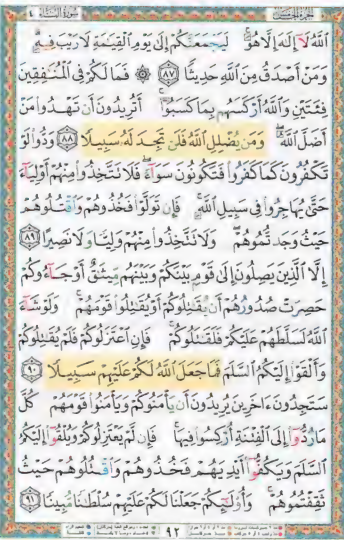 سورة النساء ٤
ٱللَّهُ لَآ إِلَٰهَ إِلَّا هُوَ ۚ لَيَجْمَعَنَّكُمْ إِلَىٰ يَوْمِ ٱلْقِيَٰمَةِ لَا رَيْبَ فِيهِ ۗ
وَمَنْ أَصْدَقُ مِنَ ٱللَّهِ حَدِيثًا ٨٧ ۞ فَمَا لَكُمْ فِى ٱلْمُنَٰفِقِينَ
فِئَتَيْنِ وَٱللَّهُ أَرْكَسَهُم بِمَا كَسَبُوٓا۟ ۚ أَتُرِيدُونَ أَن تَهْدُوا۟ مَنْ
أَضَلَّ ٱللَّهُ ۖ وَمَن يُضْلِلِ ٱللَّهُ فَلَن تَجِدَ لَهُۥ سَبِيلًا ٨٨ وَدُّوا۟ لَوْ
تَكْفُرُونَ كَمَا كَفَرُوا۟ فَتَكُونُونَ سَوَآءً ۖ فَلَا تَتَّخِذُوا۟ مِنْهُمْ أَوْلِيَآءَ
حَتَّىٰ يُهَاجِرُوا۟ فِى سَبِيلِ ٱللَّهِ ۚ فَإِن تَوَلَّوْا۟ فَخُذُوهُمْ وَٱقْتُلُوهُمْ
حَيْثُ وَجَدتُّمُوهُمْ ۖ وَلَا تَتَّخِذُوا۟ مِنْهُمْ وَلِيًّا وَلَا نَصِيرًا ٨٩
إِلَّا ٱلَّذِينَ يَصِلُونَ إِلَىٰ قَوْمٍۭ بَيْنَكُمْ وَبَيْنَهُم مِّيثَٰقٌ أَوْ جَآءُوكُمْ
حَصِرَتْ صُدُورُهُمْ أَن يُقَٰتِلُوكُمْ أَوْ يُقَٰتِلُوا۟ قَوْمَهُمْ ۚ وَلَوْ شَآءَ
ٱللَّهُ لَسَلَّطَهُمْ عَلَيْكُمْ فَلَقَٰتَلُوكُمْ ۚ فَإِنِ ٱعْتَزَلُوكُمْ فَلَمْ يُقَٰتِلُوكُمْ
وَأَلْقَوْا۟ إِلَيْكُمُ ٱلسَّلَمَ فَمَا جَعَلَ ٱللَّهُ لَكُمْ عَلَيْهِمْ سَبِيلًا ٩٠
سَتَجِدُونَ ءَاخَرِينَ يُرِيدُونَ أَن يَأْمَنُوكُمْ وَيَأْمَنُوا۟ قَوْمَهُمْ كُلَّ
مَا رُدُّوٓا۟ إِلَى ٱلْفِتْنَةِ أُرْكِسُوا۟ فِيهَا ۚ فَإِن لَّمْ يَعْتَزِلُوكُمْ وَيُلْقُوٓا۟ إِلَيْكُمُ
ٱلسَّلَمَ وَيَكُفُّوٓا۟ أَيْدِيَهُمْ فَخُذُوهُمْ وَٱقْتُلُوهُمْ حَيْثُ
ثَقِفْتُمُوهُمْ ۚ وَأُو۟لَٰٓئِكُمْ جَعَلْنَا لَكُمْ عَلَيْهِمْ سُلْطَٰنًا مُّبِينًا ٩١
٩٢